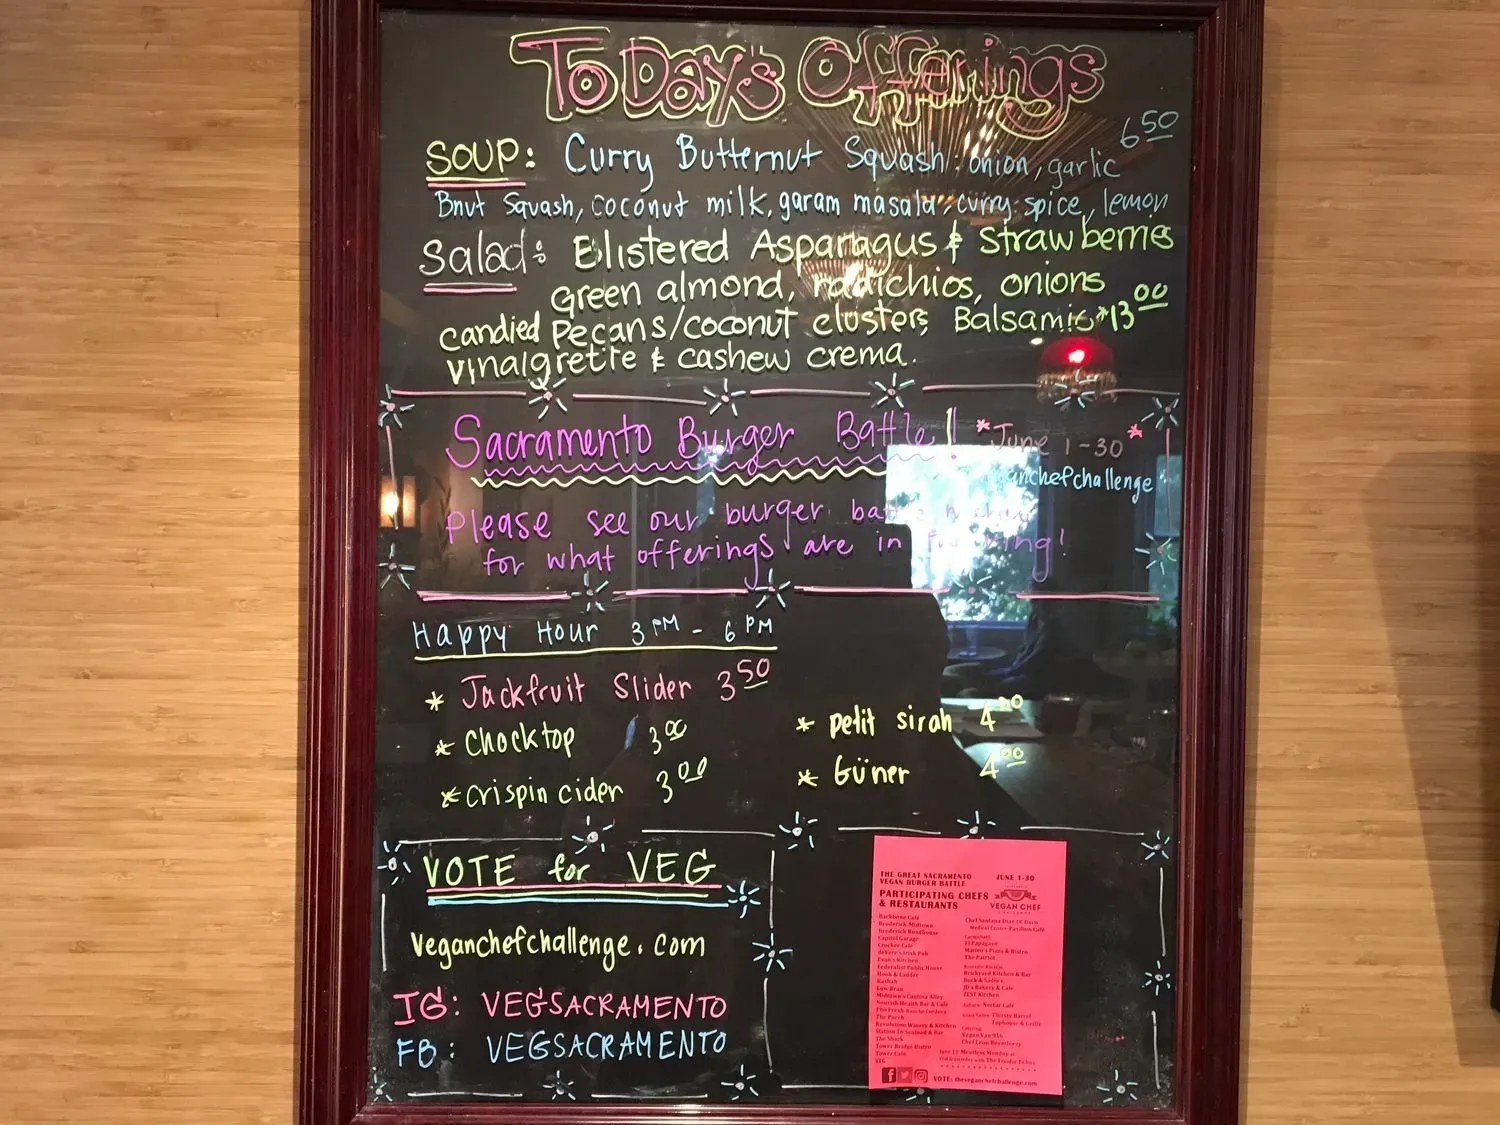 ToDay's Offerings
SOUP: Curry Butternut Squash: onion, garlic 6.50
Bnut Squash, coconut milk, garam masala, curry spice, lemon
Salad: Blistered Asparagus & Strawberries
Green almond, radichios, onions
candied Pecans/coconut clusters, Balsamic *13.00
Vinaigrette & cashew crema.
Sacramento Burger Battle! *June 1-30*
chefchallenge
Please see our burger
for what offerings are in
Happy Hour 3PM - 6PM
* Jackfruit Slider 3.50
* Chocktop 3.00
* crispin cider 3.00
* petit sirah 4.00
* Güner 4.00
VOTE for VEG
veganchefchallenge.com
IG: VEGSACRAMENTO
FB: VEGSACRAMENTO
THE GREAT SACRAMENTO
VEGAN BURGER BATTLE
JUNE 1-30
PARTICIPATING CHEFS
& RESTAURANTS
VEGAN CHEF
CHALLENGE
Backbone Café
Broderick Midtown
Broderick Roadhouse
Capitol Garage
Crocker Café
deVere's Irish Pub
Evan's Kitchen
Federalist Public House
Hook & Ladder
Kasbah
Low Brau
Midtown's Cantina Alley
Nourish Health Bar & Café
Pho Fresh Rancho Cordova
The Porch
Revolution Winery & Kitchen
Station 16 Seafood & Bar
The Shack
Tower Bridge Bistro
Tower Café
VEG
Chef Santana Diaz
Medical Center Pavilion Café
El Papagayo
Matteo's Pizza & Bistro
The Patriot
Brickyard Kitchen & Bar
JD's Bakery & Café
ZEST Kitchen
Nectar Café
Thirsty Barrel
Taphouse & Grille
Catering
Vegan Van 916
June 11 Meatless Monday at
with The Foodie Felons
VOTE: theveganchefchallenge.com